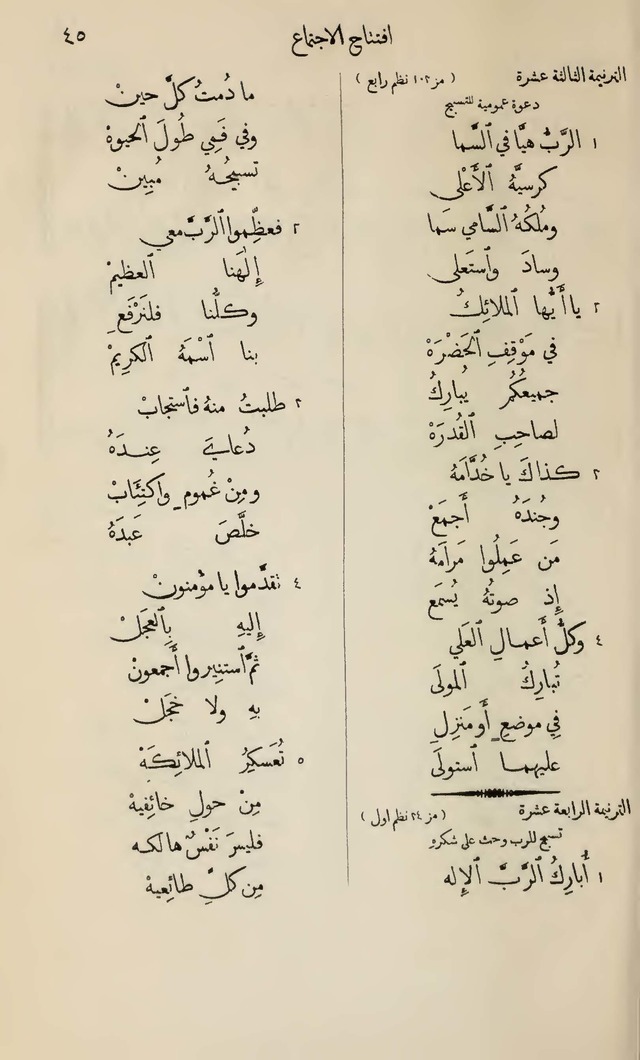 افتتاح الاجتماع
٤٥
الترنيمة الثالثة عشرة ( مز ١٠٢ نظم رابع )
دعوة عمومية للتسبيح
١ الرَّبُّ هيَّا في ٱلسَّما
كرسيَّهُ ٱلأَعْلَى
وملكُهُ ٱلسَّامي سَما
وسادَ وٱستَعلى
٢ يا أَيُّها ٱلملائِكُ
في مَوْقِفِ ٱلحَضْرَهْ
جميعكُمُ يُبارِكُ
لصاحِبِ ٱلقُدرَهْ
٢ كذاكَ يا خُدَّامَهُ
وجُندَهُ أَجمَعْ
مَن عَمِلُوا مَرامَهُ
إِذ صوتهُ يُسمَع
٤ وكلُّ أَعمالِ ٱلعَلي
تُبارِكُ ٱلمولَى
فِي موضعٍ أَو مَنزِلِ
عليهما ٱستولَى
الترنيمة الرابعة عشرة ( مز ٢٤ نظم اول )
تسبيح للرب وحث على شكره
١ أُبارِكُ ٱلرَّبَّ ٱلإِله
ما دُمتُ كلَّ حينْ
وفي فَمِي طُولَ ٱلحيوهْ
تسبيحُهُ مُبِينْ
٢ فعظِّموا ٱلرَّبَّ معي
إِلَهَنا ٱلعظيمْ
وكلُّنا فلنَرْفَعِ
بنا ٱسْمَهُ ٱلكرِيمْ
٢ طلبتُ منهُ فٱستجابْ
دُعايَ عِندَهُ
ومِنْ غُمومٍ وٱكتِئَابْ
خلَّصَ عَبدَهُ
٤ تقدَّموا يا مؤْمنونْ
إِليهِ بِٱلعجَلْ
ثمَّ ٱستنِيروا أَجمعونْ
بهِ ولا خجَلْ
٥ تُعَسكِرُ ٱلملائِكَهْ
مِنْ حولِ خائِفيهْ
فليسَ نَفْسٌ هالكه
مِن كلِّ طائِعيهْ